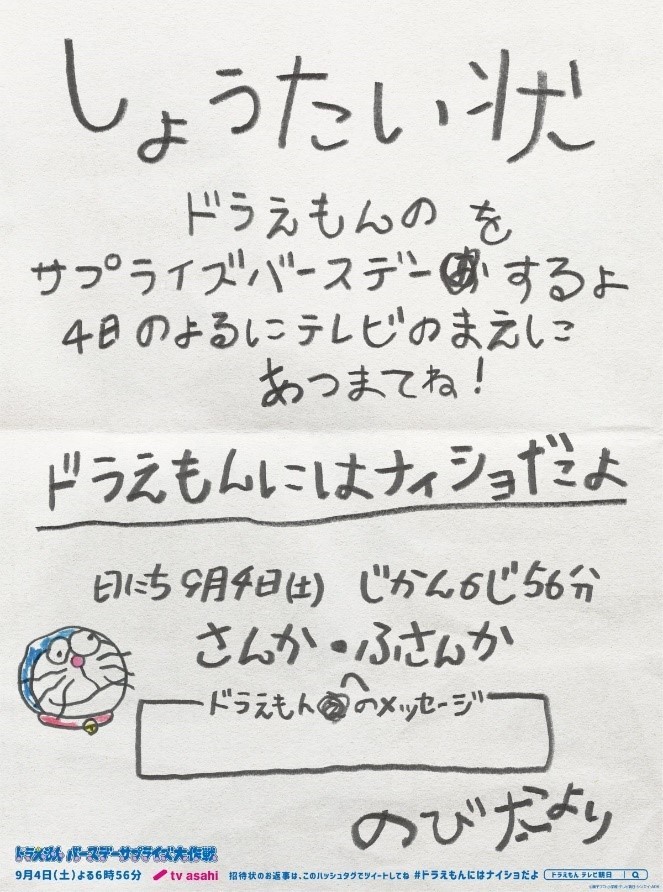 しょうたい状
ドラえもんのを
サプライズバースデーするよ
4日のよるにテレビのまえに
あつまてね!
ドラえもんにはナイショだよ
日にち9月4日(土) じかん6じ56分
さんか・ふさんか
ドラえもんへのメッセージ
のびたより
ドラえもん バースデーサプライズ大作戦
9月4日(土)よる6時56分 tv asahi 招待状のお返事は、このハッシュタグでツイートしてね #ドラえもんにはナイショだよ ドラえもん テレビ朝日